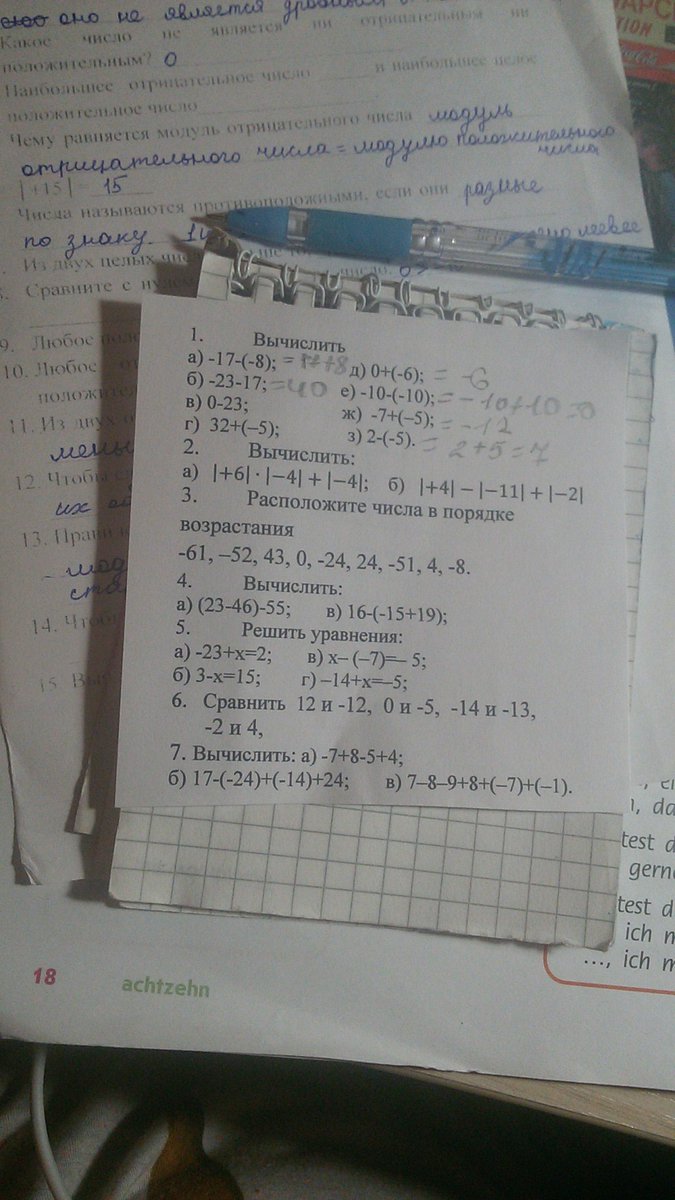 оно не является
Какое число не является ни отрицательным ни
положительным? 0
Наибольшее отрицательное число и наибольшее целое
положительное число
Чему равняется модуль отрицательного числа модуль
отрицательного числа = модулю положительного
числа
|+15| = 15
Числа называются противоположными, если они разные
по знаку.
Из двух целых
Сравните с нулем
9. Любое
10. Любое
11. Из двух
12. Чтобы
их
13.
14.
15.
1. Вычислить
а) -17-(-8); = 17+8 д) 0+(-6); = -6
б) -23-17; =40 е) -10-(-10); = -10+10=0
в) 0-23; ж) -7+(–5); = -12
г) 32+(–5); з) 2-(-5). = 2+5=7
2. Вычислить:
а) |+6| · |−4| + |−4|; б) |+4| − |−11| + |−2|
3. Расположите числа в порядке
возрастания
-61, –52, 43, 0, -24, 24, -51, 4, -8.
4. Вычислить:
а) (23-46)-55; в) 16-(-15+19);
5. Решить уравнения:
а) -23+х=2; в) х– (–7)=– 5;
б) 3-х=15; г) –14+х=–5;
6. Сравнить 12 и -12, 0 и -5, -14 и -13,
-2 и 4,
7. Вычислить: а) -7+8-5+4;
б) 17-(-24)+(-14)+24; в) 7–8–9+8+(–7)+(–1).
test d
gern
test d
ich m
..., ich m
18 achtzehn